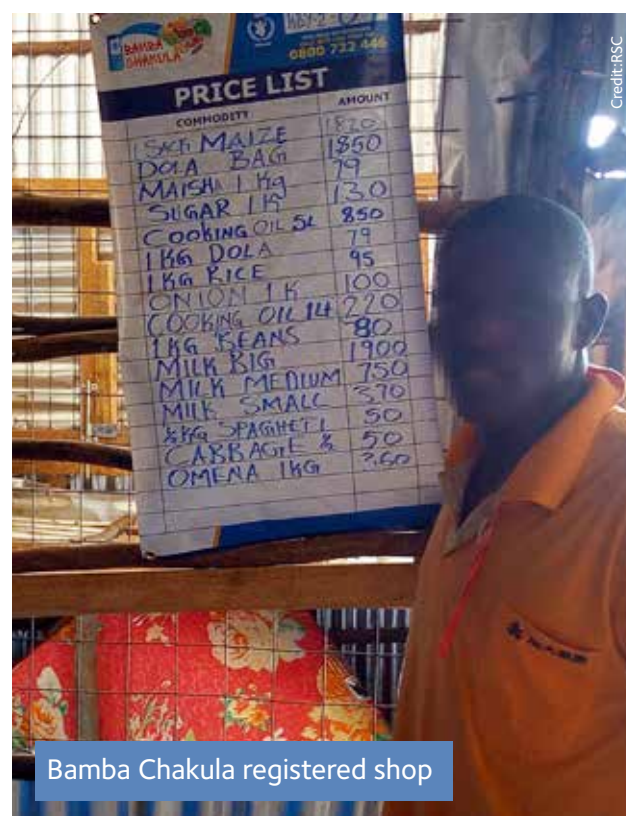 Credit:RSC
BAMBA
CHAKULA
0800 732 446
PRICE LIST
COMMODITY AMOUNT
1 SACK MAIZE 1820
DOLA BAG 1850
MAISHA 1 Kg 79
SUGAR 1K 130
COOKING OIL 5L 850
1KG DOLA 79
1KG RICE 95
ONION 1K 100
COOKING OIL 220
1KG BEANS 80
MILK BIG 1900
MILK MEDIUM 750
MILK SMALL 370
½KG SPAGHETI 50
CABBAGE 50
OMENA 1KG
Bamba Chakula registered shop